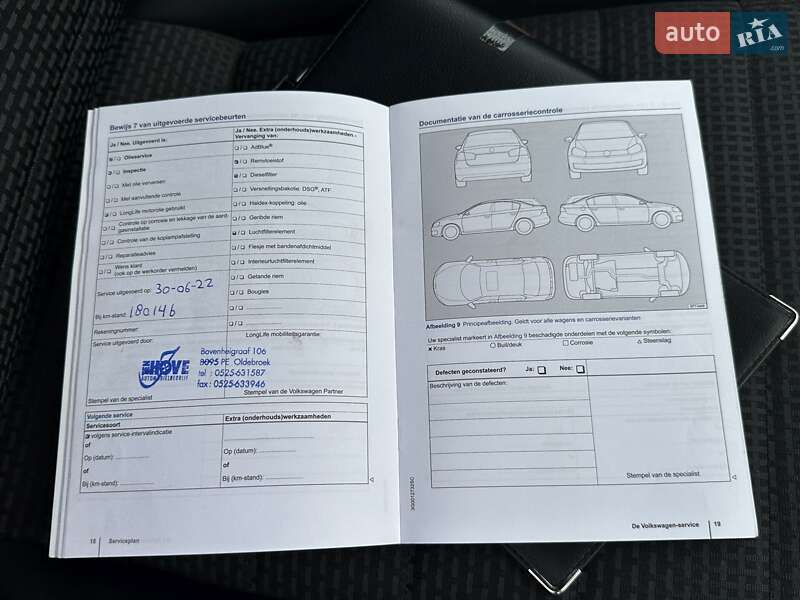 auto RIA
.com
Bewijs 7 van uitgevoerde servicebeurten
Ja / Nee. Uitgevoerd is:
Olieservice
Inspectie
Met olie verversen
Met aanvullende controle
LongLife motorolie gebruikt
Controle op corrosie en lekkage van de aard-
gasinstallatie
Controle van de koplampafstelling
Reparatieadvies
Wens klant
(ook op de werkorder vermelden)
Service uitgevoerd op: 30-06-22
Bij km-stand: 180146
Rekeningnummer:
Service uitgevoerd door:
HOVE
AUTOMOBIELBEDRIJF
Bovenheigraaf 106
8095 PE Oldebroek
tel : 0525-631587
fax : 0525-633946
Stempel van de specialist
Ja / Nee. Extra (onderhouds)werkzaamheden.-
Vervanging van:
AdBlue®
Remvloeistof
Dieselfilter
Versnellingsbakolie: DSG®, ATF
Haldex-koppeling: olie
Geribde riem
Luchtfilterelement
Flesje met bandenafdichtmiddel
Interieurluchtfilterelement
Getande riem
Bougies
LongLife mobiliteitsgarantie:
Stempel van de Volkswagen Partner
Volgende service
Servicesoort
volgens service-intervalindicatie
of
Op (datum):
of
Bij (km-stand):
Extra (onderhouds)werkzaamheden
Op (datum):
of
Bij (km-stand):
18 Serviceplan
Documentatie van de carrosseriecontrole
Afbeelding 9 Principeafbeelding. Geldt voor alle wagens en carrosserievarianten
Uw specialist markeert in Afbeelding 9 beschadigde onderdelen met de volgende symbolen:
× Kras ○ Buil/deuk □ Corrosie △ Steenslag
Defecten geconstateerd? Ja: Nee:
Beschrijving van de defecten:
Stempel van de specialist
De Volkswagen-service 19